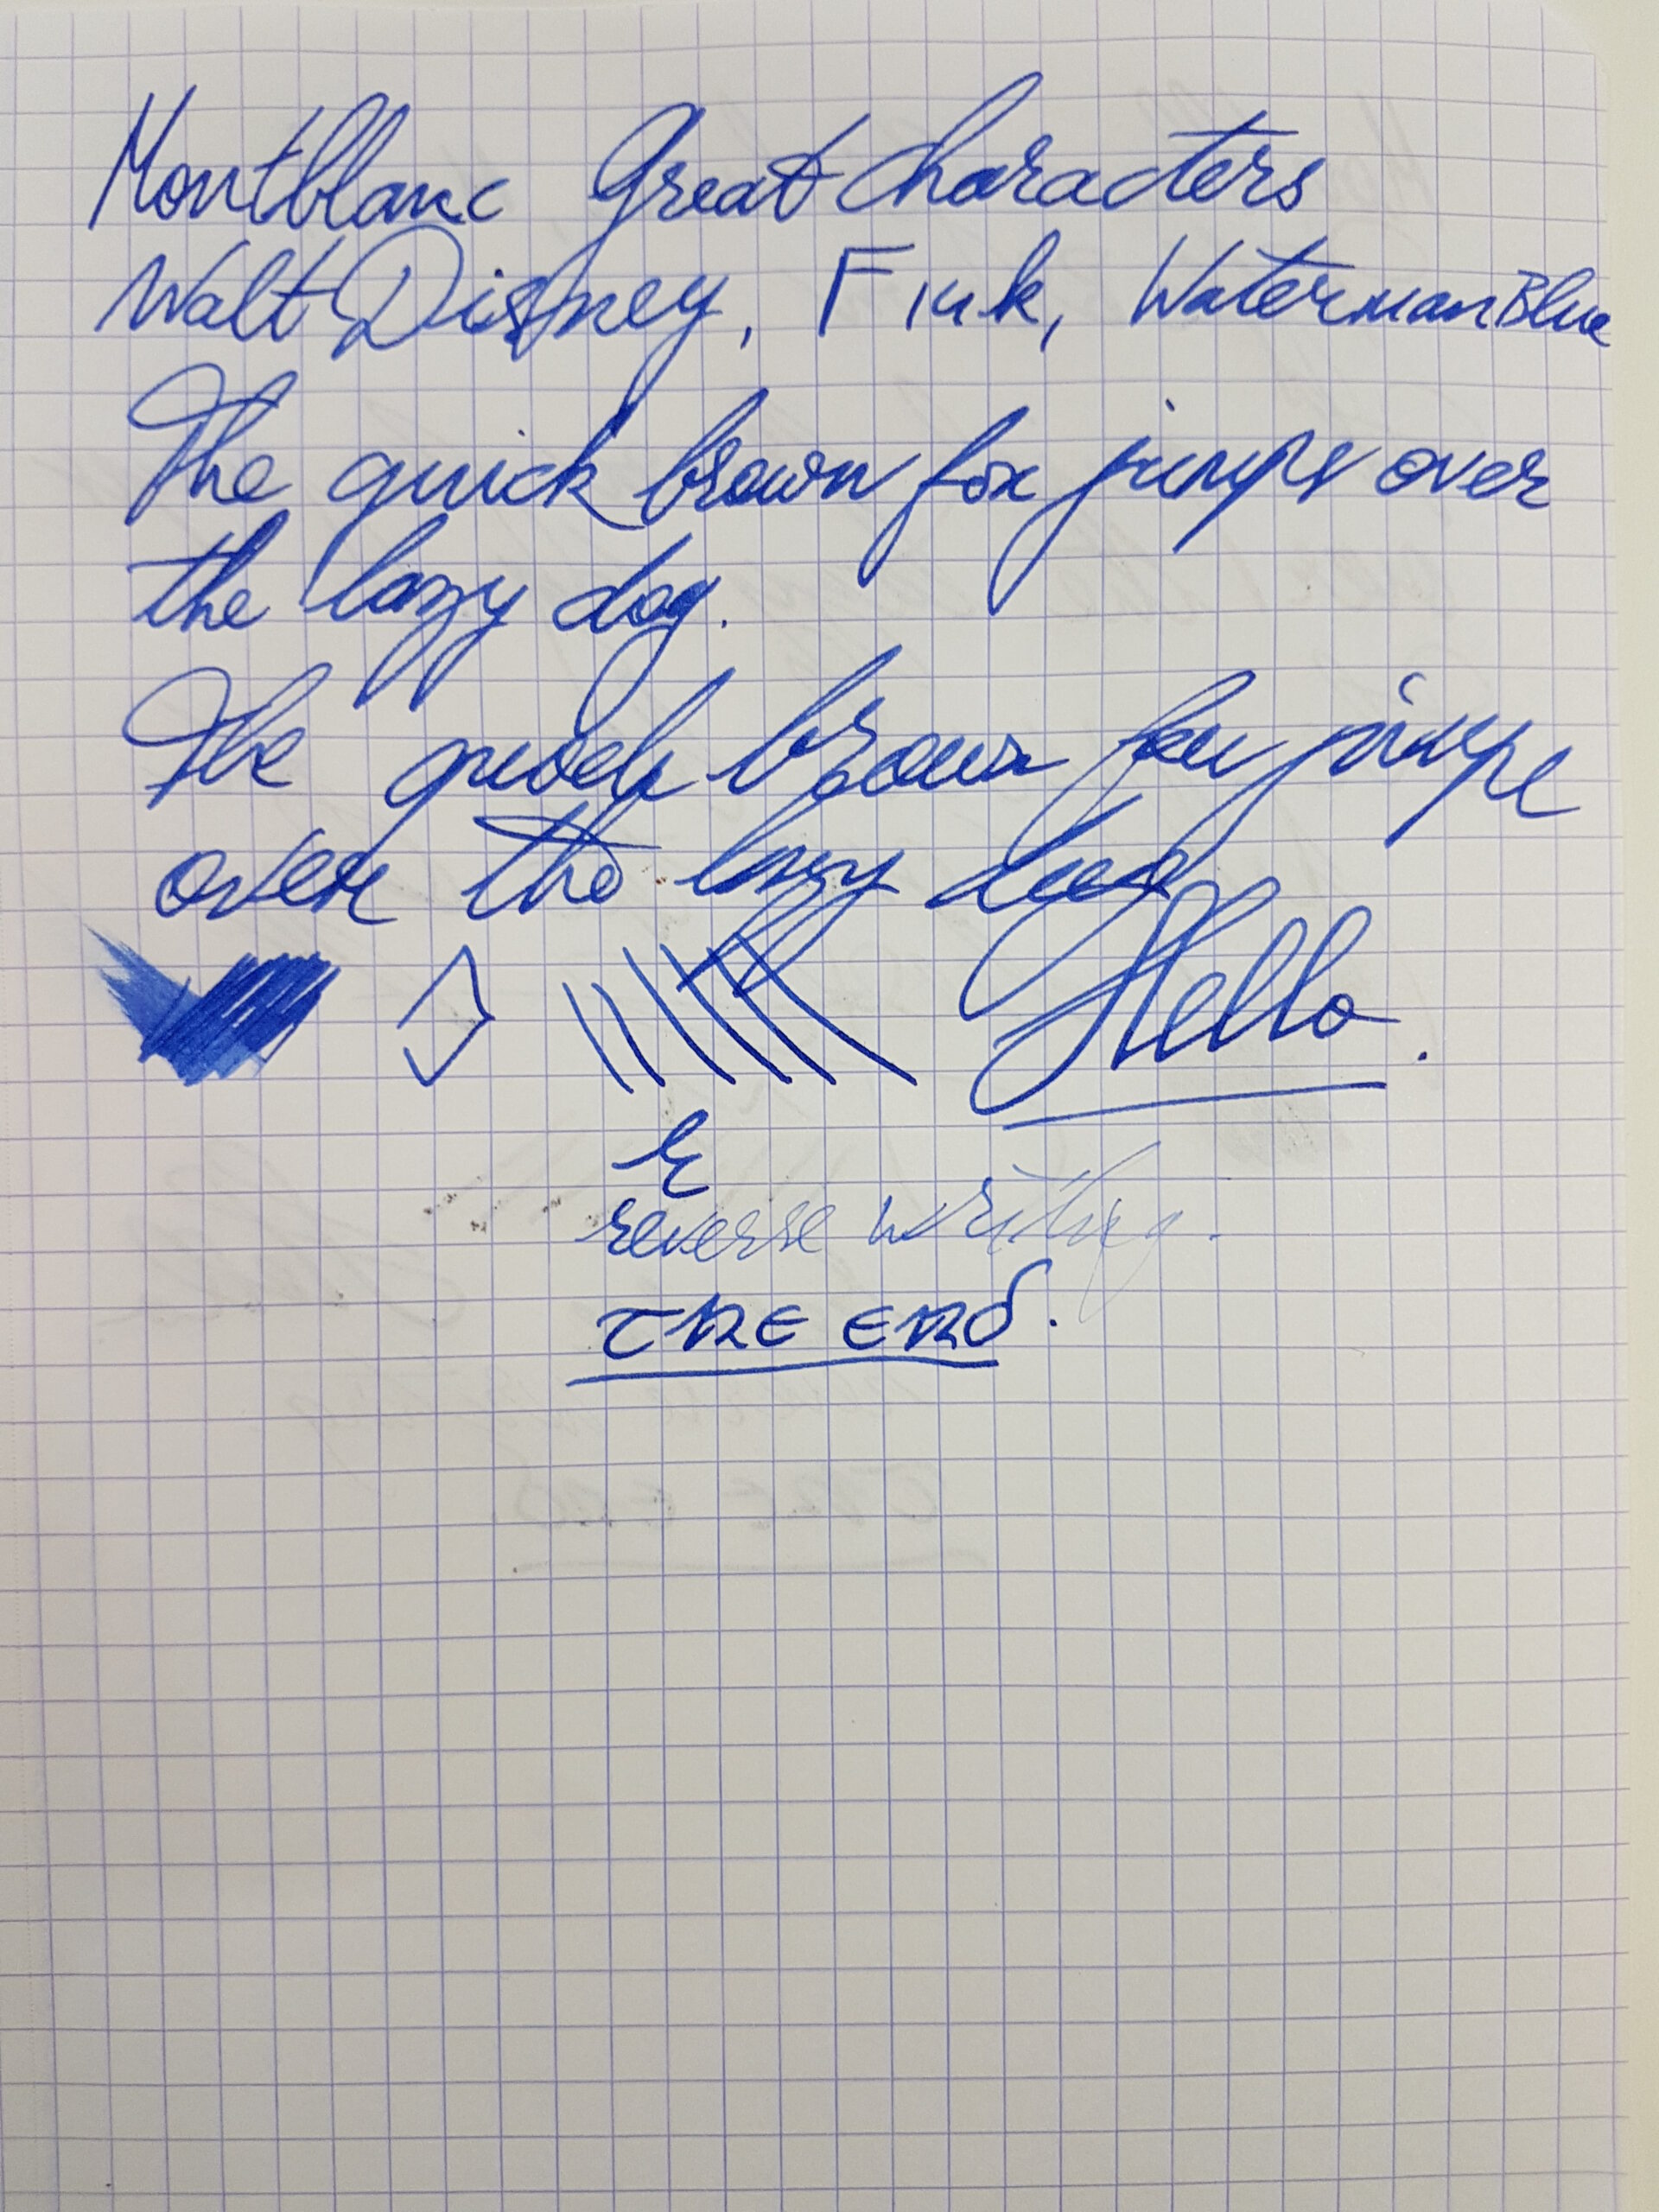 Montblanc Great Characters
Walt Disney, F ink, Waterman Blue
The quick brown fox jumps over
the lazy dog.
The quick brown fox jumps
over the lazy dog
Hello.
reverse writing.
THE END.